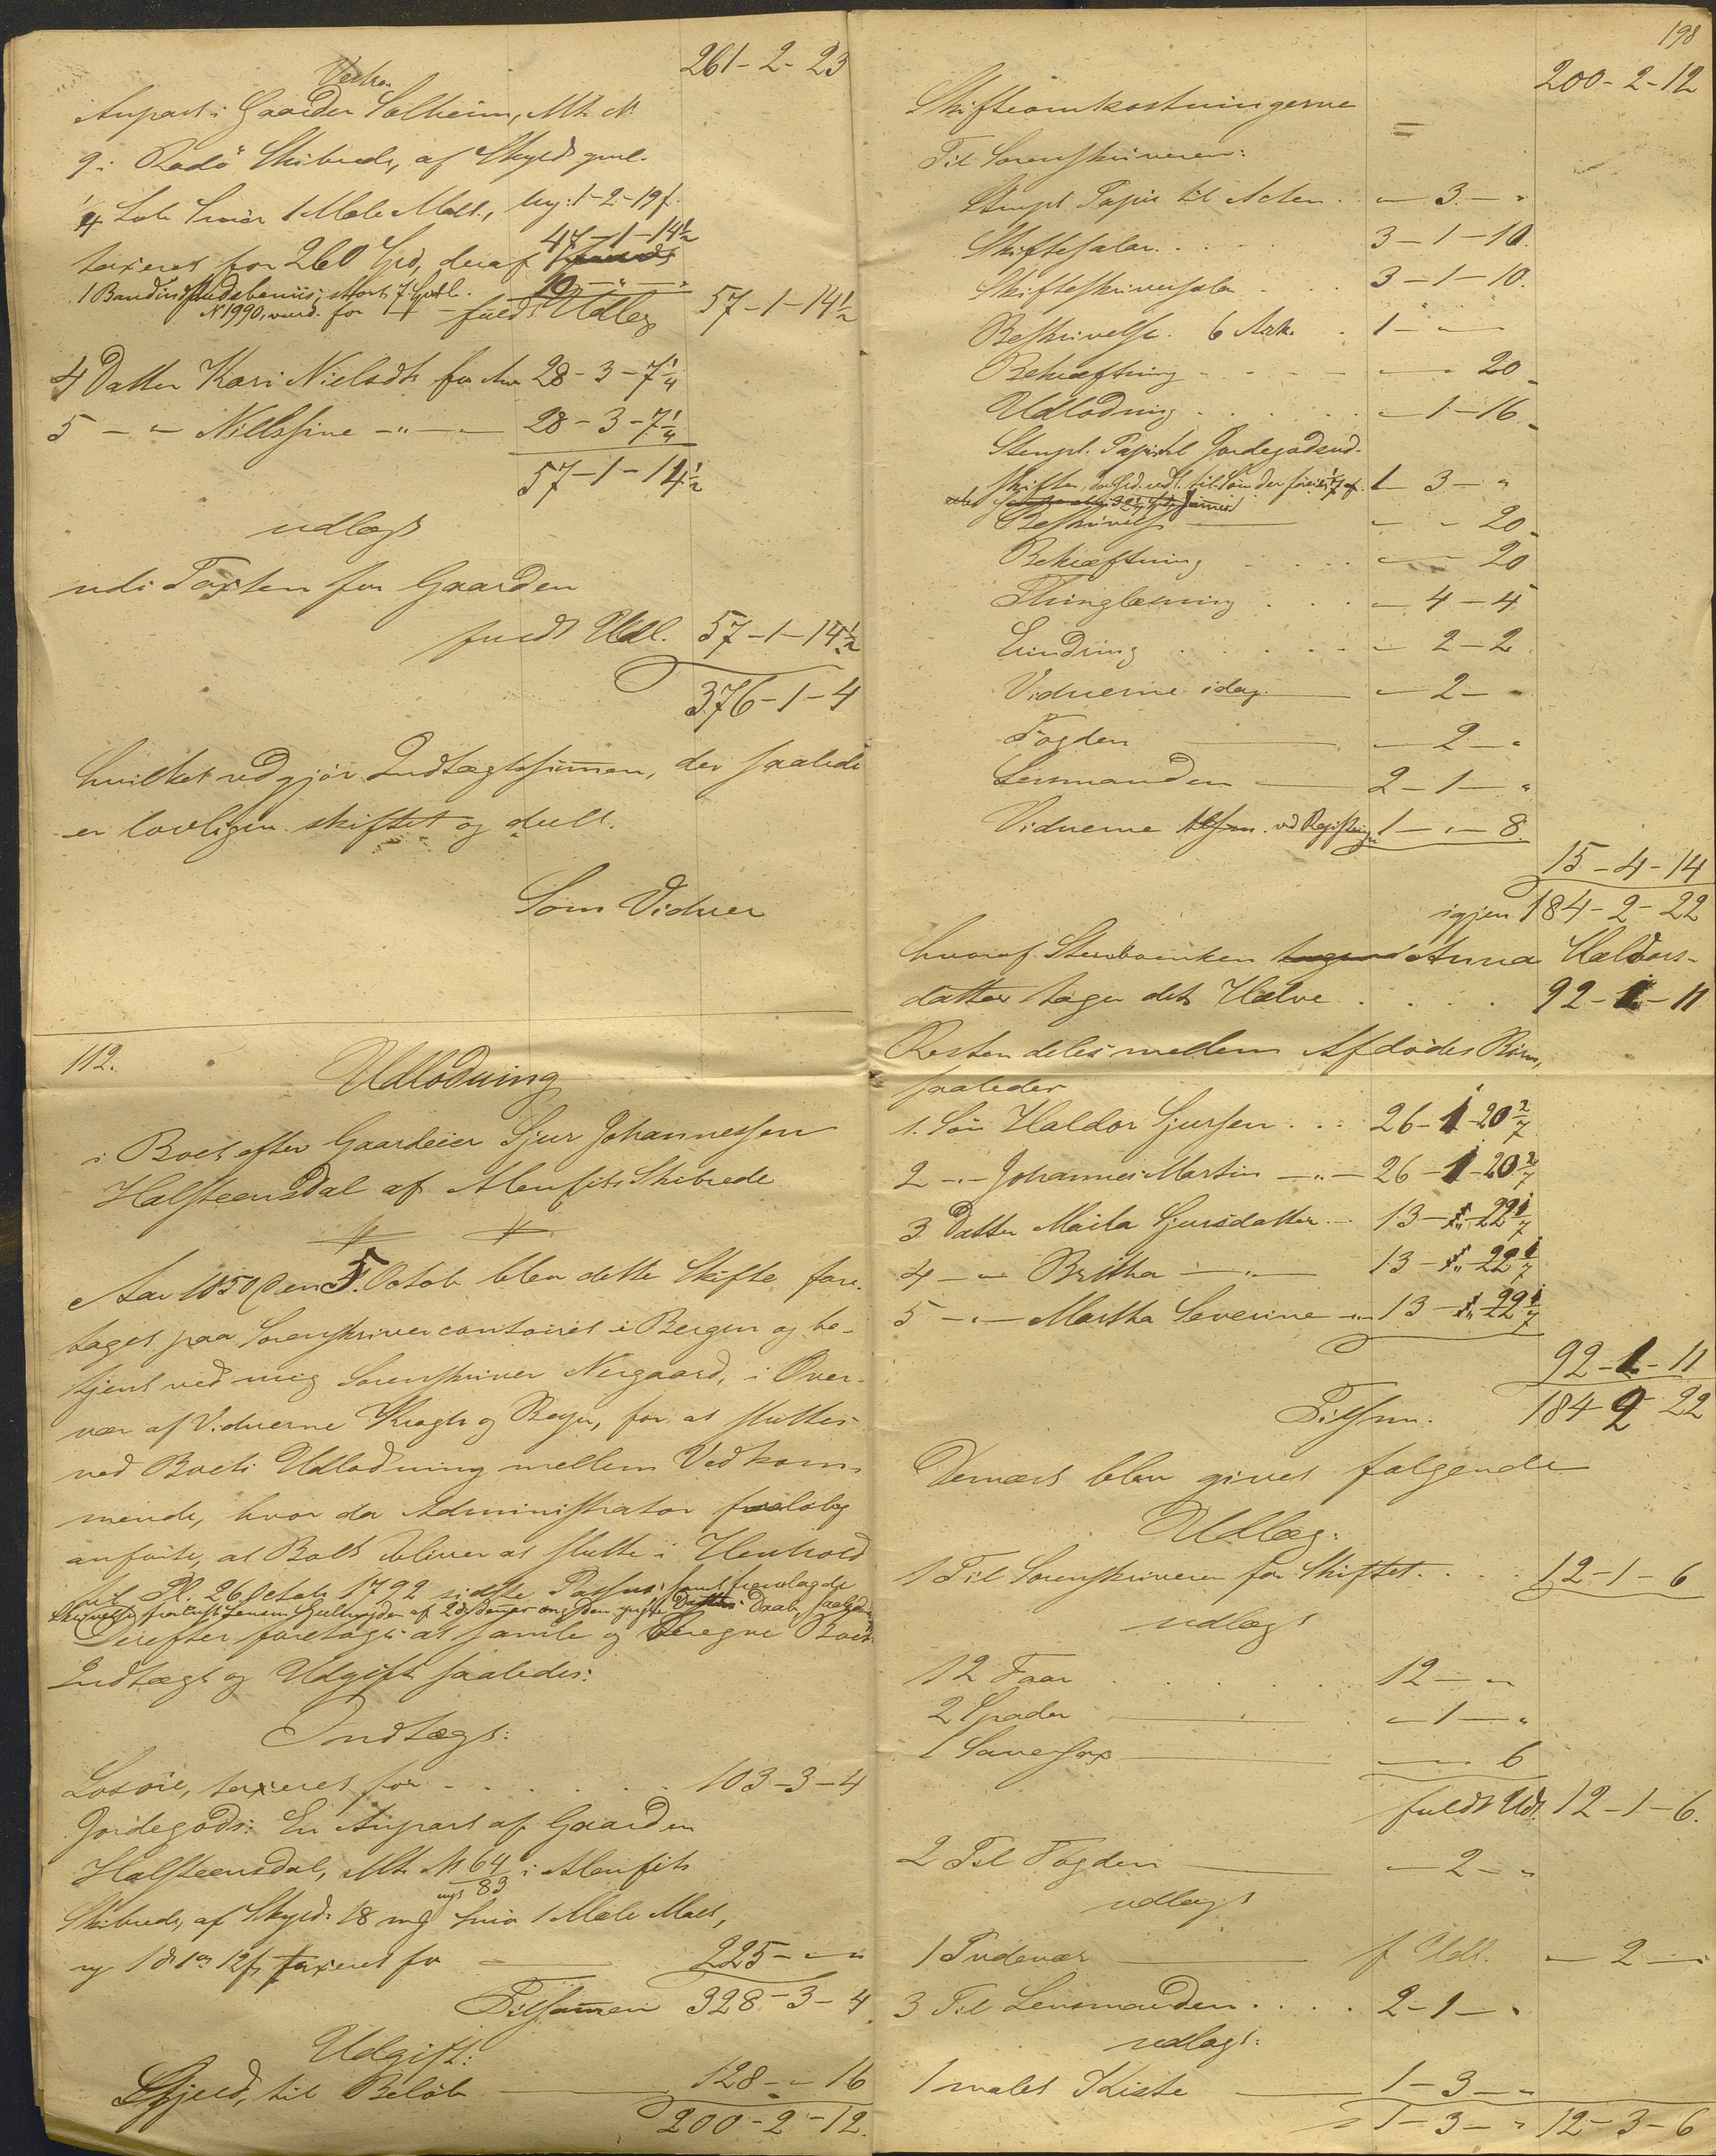 261-2-23
Vestre
Anpart i Gaarden Solheim, Mtr. N.
9 i Radö Skibrede, af Skyld gml.
1/4 Løb Smör 1 Mæle Malt, ny: 1-2-19 f.
47-1-14½
taxeret for 260 Spd, deraf
10-"-"
N 1990, vurd. for
fuldt Udlæg 57-1-14½
4 Datter Kari Nielsdtr for Arv 28-3-7¼
5 - " - Nillssine - " - 28-3-7¼
57-1-14½
udlagt
udi Taxten for Gaarden
fuldt Udl. 57-1-14½
376-1-4
hvilket udgjör Indtægtssummen, der saaledes
er lovligen skiftet og deelt.
Som Vidner
112.
Udlodning
i Boet efter Gaardeier Sjur Johannessen
Halsteensdal af Alenfits Skibrede
Aar 1850 den 5. Octob blev dette Skifte fore-
taget paa Sorenskrivercontoiret i Bergen og be-
tjent ved mig Sorenskriver Neergaard, i Over-
vær af Vidnerne Krogh og Roger, for at sluttes
ved Boets Udlodning mellem Vedkom-
mende, hvor da Administrator foreløbig
anförte, at Boet bliver at slutte i Henhold
til Pl. 26 Octob 1792 sidste Passus, samt fremlagde
Derefter foretoges at samle og beregne Boets
Indtægt og Udgift saaledes:
Indtægt:
Losöre, taxeret for . . . . . . 103-3-4
Jordegods: En Anpart af Gaarden
Halsteensdal, Mtr. N 64 i Alenfits
nyt 83
Skibrede, af Skyld: 18 mg Smör 1 Mæle Malt,
ny 1 d 1 ort 12 f, taxeret for 225-"-"
Tilsammen 328-3-4
Udgift:
Gjeld, til Belöb 128-"-16
200-2-12.
198
200-2-12
Skifteomkostningerne
Til Sorenskriveren:
Stempl. Papir til Acten . . "-3-"
Skiftesalar . . . . 3-1-10.
Skifteskriversalar . . . 3-1-10.
Beskrivelse. 6 Ark. . 1-"-
Bekræftning . . . . "-"-20
Udlodning . . . . . "-1-16
Stempl. Papir til Jordegodsud-
1-3-"
Beskrivelse "-"-20
Bekræftning . . . . "-"-20
Thinglæsning . . . "-4-4
Lindring . . . . . "-2-2
Vidnerne idag "-2-"
Fogden "-2-"
Lensmanden 2-1-"
Vidnerne ved Registeringen 1-"-8.
15-4-14
igjen 184-2-22
hvoraf Stervboenken Anna Haldors-
datter tager det Halve . . . . 92-1-11
Resten deles mellem Afdödes Börn,
saaledes
1. Sön Haldor Sjursen . . . 26-1-20 2/7
2 - " - Johannes Martin - " - 26-1-20 2/7
3 Datter Marta Sjursdatter - 13-"-22 1/7
4 - " - Britha - " - 13-"-22 1/7
5 - " - Martha Severine - " - 13-"-22 1/7
92-1-11
Tilsam. 184-2-22
Dernæst blev givet følgende
Udlæg:
1 Til Sorenskriveren for Skiftet . . . . 12-1-6
udlagt
12 Faar . . . . . 12-"-"
2 Spader "-1-"
1 Sauesax "-"-6
fuldt Udl. 12-1-6.
2 Til Fogden "-2-"
udlagt
1 Pudevar f. Udl. "-2-"
3 Til Lensmanden . . . . 2-1-"
udlagt:
1 malet Kiste 1-3-"
1-3-" 12-3-6